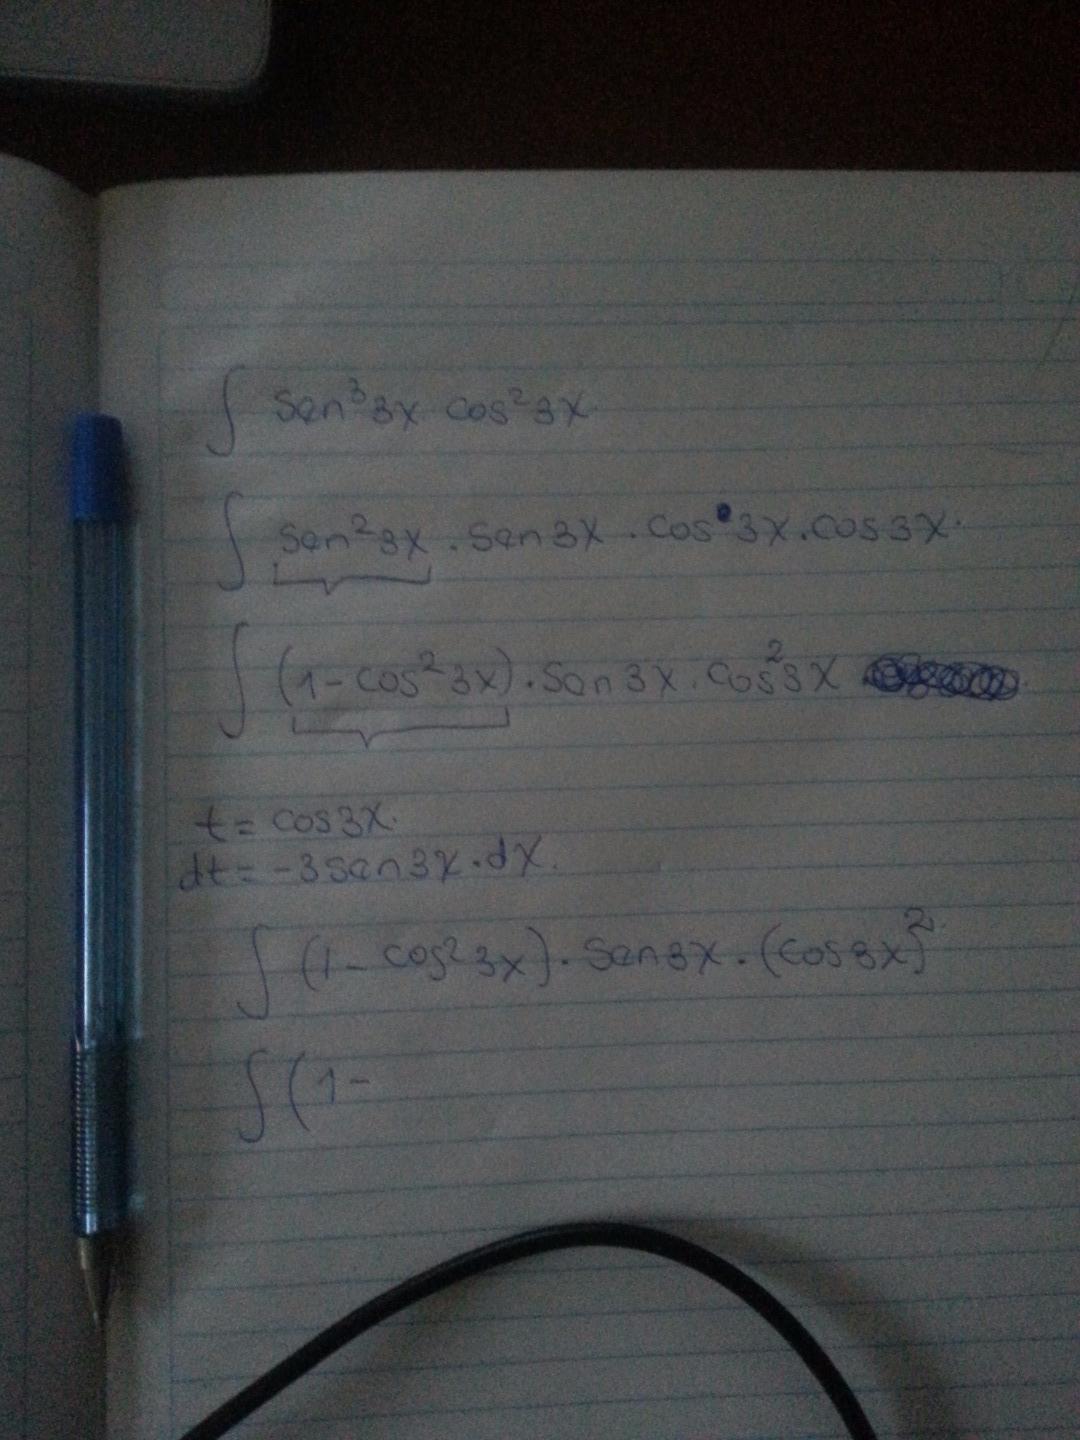 ∫ Sen³3x cos²3x
∫ Sen²3x . Sen3x . Cos 3x . Cos3x.
∫ (1 - cos²3x) . Sen3x . Cos²3x
t = cos3x.
dt = -3sen3x . dx.
∫ (1 - cos²3x) . Sen3x . (cos3x)²
∫ (1 -